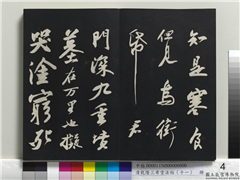 知是寒食
但見烏銜
帋君
門深九重墳
墓在万里也擬
哭塗窮死
4
國立故宮博物院